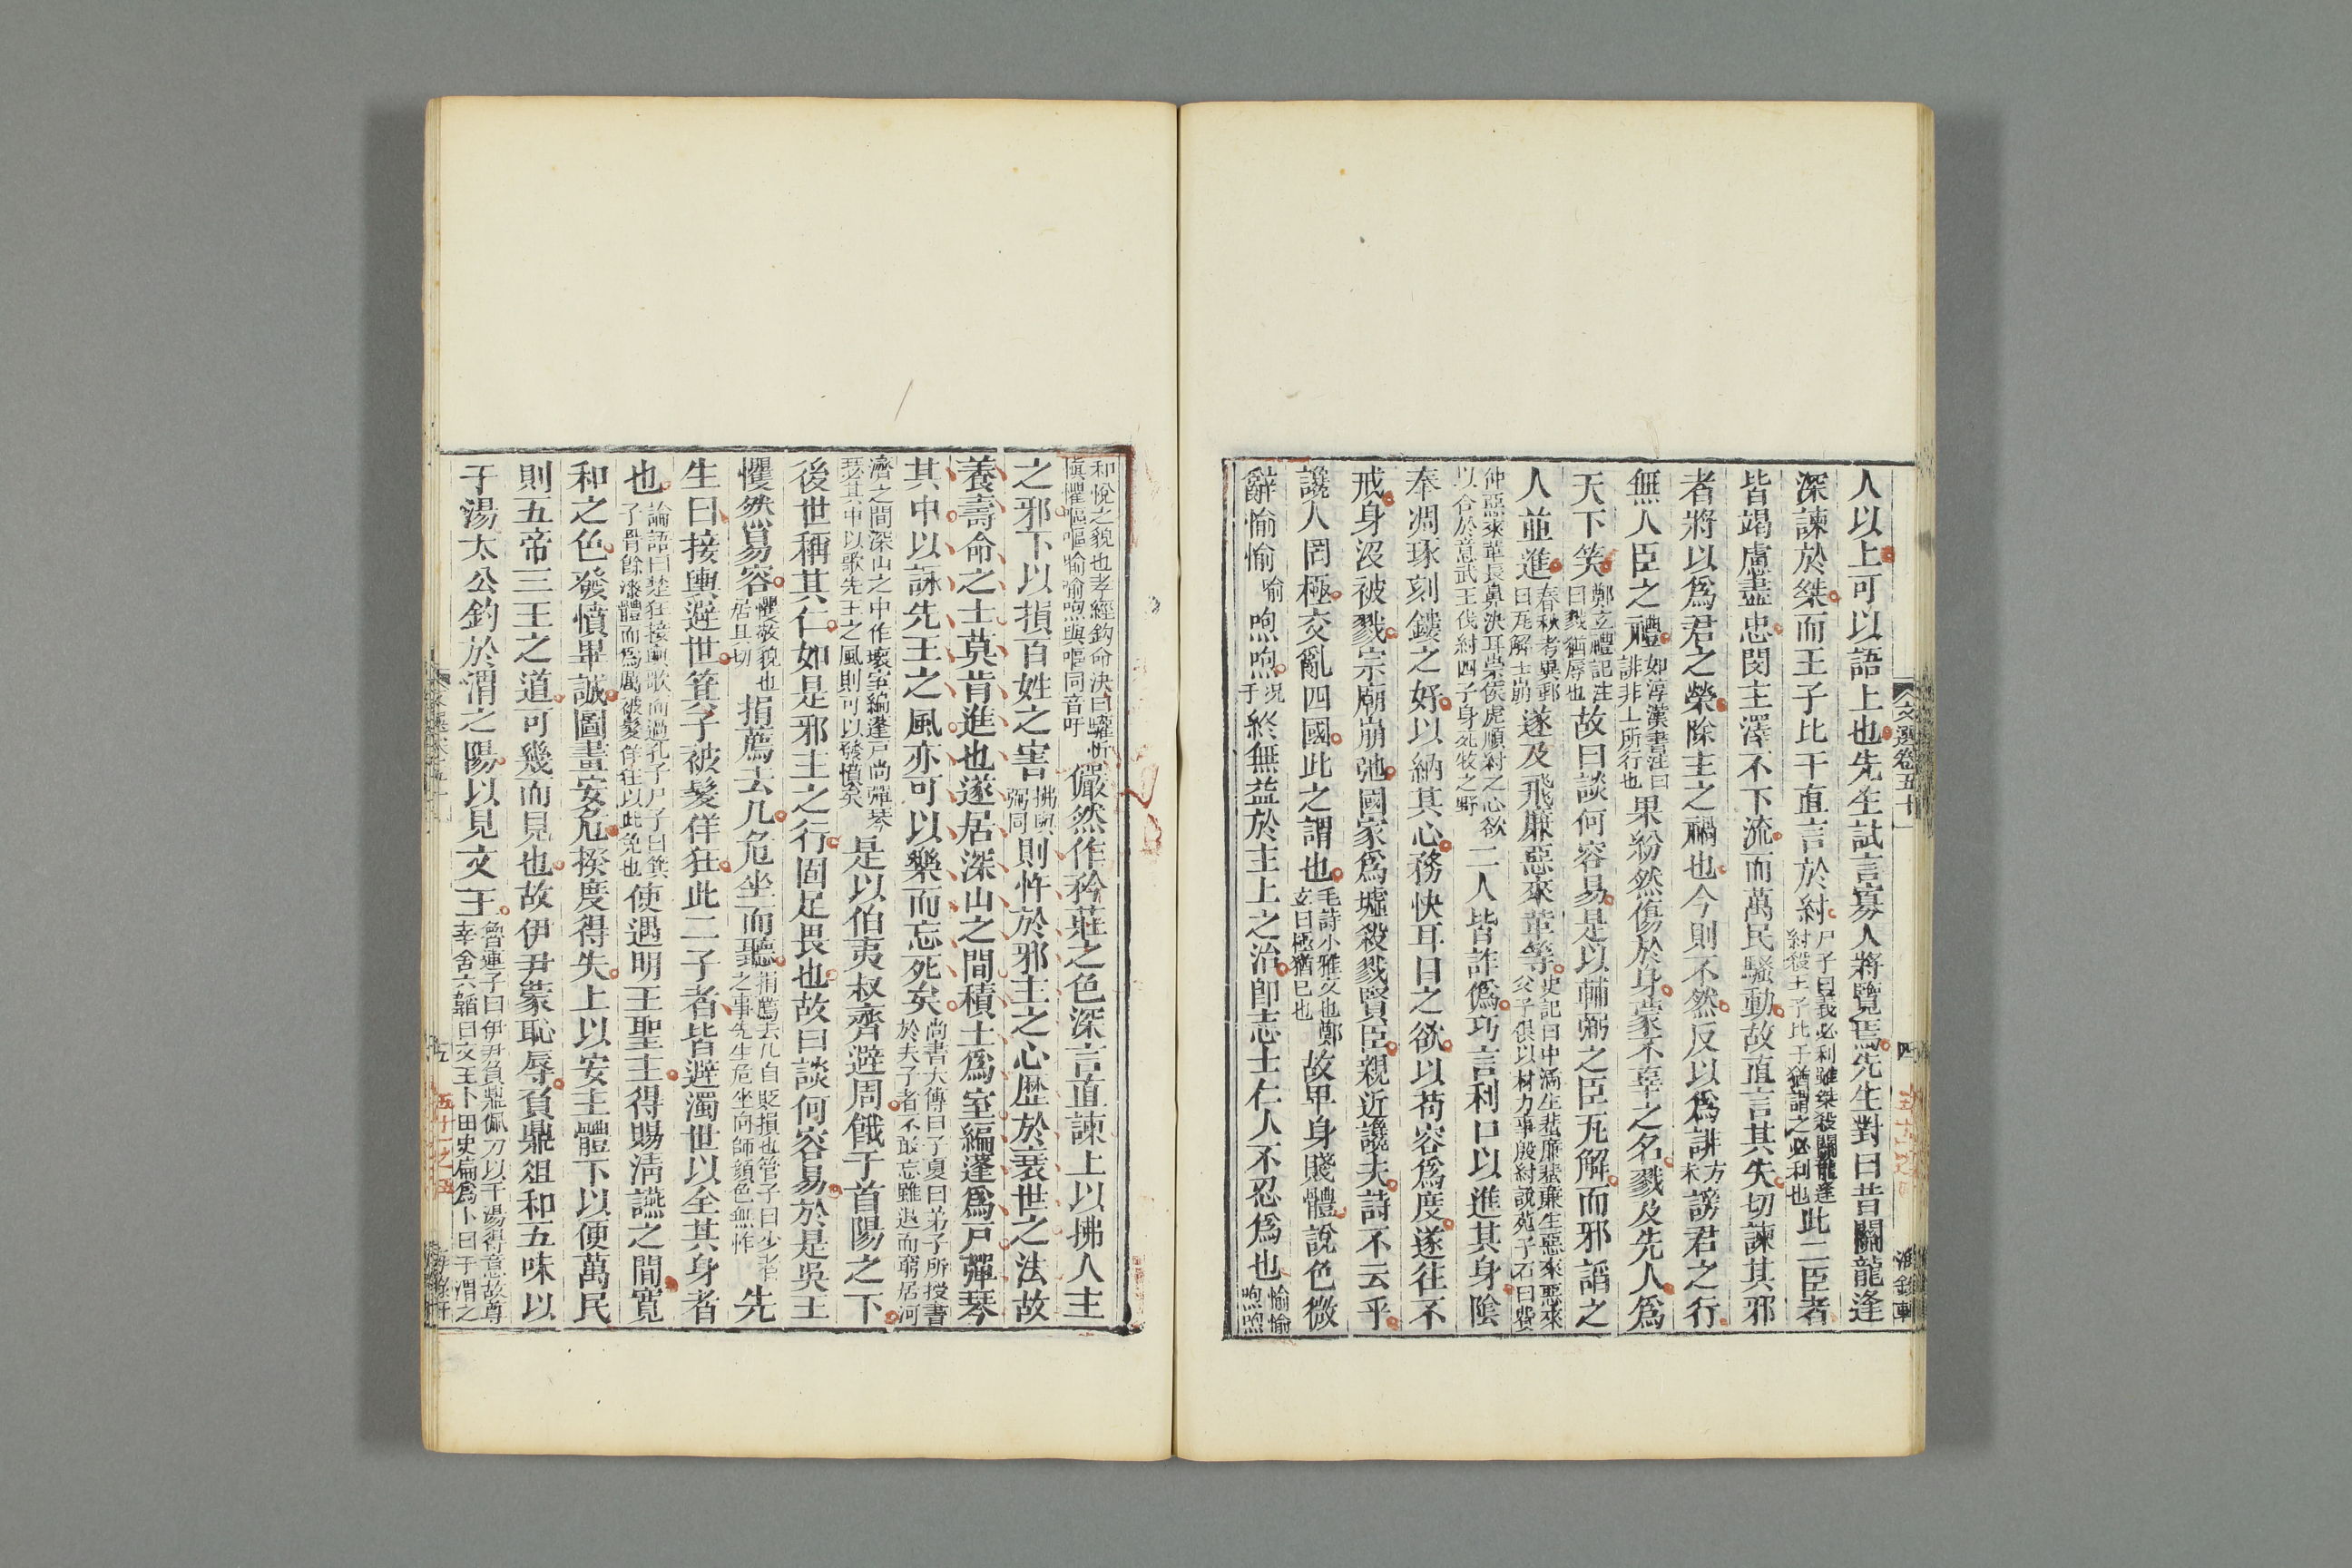 人以上可以語上也先生試言寡人將覽焉先生對曰昔關龍逢
深諫於桀而王子比干直言於紂尸子曰義必利雖桀殺關龍逢紂殺王子比干猶謂之必利也此二臣者
皆竭慮盡忠閔主澤不下流而萬民騷動故直言其失切諫其邪
者將以爲君之榮除主之禍也今則不然反以爲誹方未謗君之行
無人臣之禮如淳漢書注曰誹非上所行也果紛然傷於身蒙不辜之名戮及先人爲
天下笑鄭玄禮記注曰戮猶辱也故曰談何容易是以輔弼之臣瓦解而邪謟之
人並進春秋考異郵曰瓦解土崩遂及飛廉惡來革等史記曰中滿生蜚廉蜚廉生惡來惡來父子俱以材力事殷紂說苑子石曰費
仲惡來革長鼻決耳崇侯虎順紂之心欲以合於意武王伐紂四子身死牧之野二人皆詐僞巧言利口以進其身陰
奉凋琢刻鏤之好以納其心務快耳目之欲以苟容爲度遂往不
戒身没被戮宗廟崩弛國家爲墟殺戮賢臣親近讒夫詩不云乎
讒人罔極交亂四國此之謂也毛詩小雅文也鄭玄曰極猶已也故卑身賤體說色微
辭愉愉喻呴呴况于終無益於主上之治卽志士仁人不忍爲也愉愉呴呴
文選卷五十一
四
海錄軒
和悅之貌也孝經鈎命決曰驩忻慎懼嘔嘔喻喻呴與嘔同音吁儼然作矜莊之色深言直諫上以拂人主
之邪下以損百姓之害拂與弼同則忤於邪主之心歷於衰世之法故
養壽命之士莫肯進也遂居深山之間積土爲室編蓬爲戸彈琴
其中以詠先王之風亦可以樂而忘死矣尚書大傳曰子夏曰弟子所授書於夫子者不敢忘雖退而窮居河
濟之間深山之中作壤室編蓬戸尚彈琴瑟其中以歌先王之風則可以發憤矣是以伯夷叔齊避周餓于首陽之下
後世稱其仁如是邪主之行固足畏也故曰談何容易於是吳王
懼然易容懼敬貌也居具切捐薦去几危坐而聽捐薦去几自貶損也管子曰少者之事先生危坐向師顔色無怍先
生曰接輿避世箕子被髮佯狂此二子者皆避濁世以全其身者
也論語曰楚狂接輿歌而過孔子尸子曰箕子胥餘漆體而爲厲被髮佯狂以此免也使遇明王聖主得賜淸讌之間寬
和之色發憤畢誠圖畫安危揆度得失上以安主體下以便萬民
則五帝三王之道可幾而見也故伊尹蒙恥辱負鼎俎和五味以
于湯太公釣於渭之陽以見文王魯連子曰伊尹負鼎佩刀以干湯得意故尊宰舍六韜曰文王卜田史扁爲卜曰于渭之
五